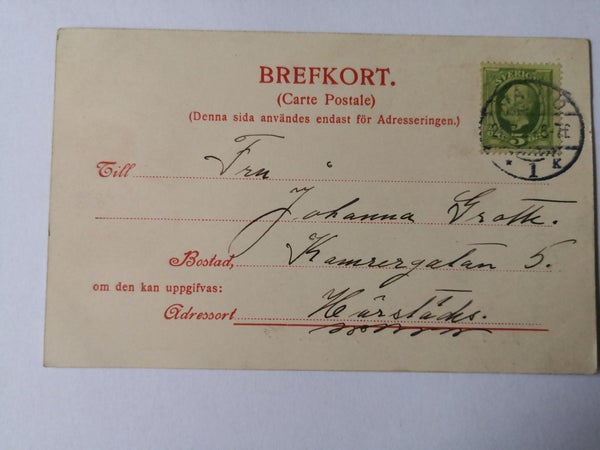 BREFKORT.
(Carte Postale)
(Denna sida användes endast för Adresseringen.)
SVERIGE
5
1 K
Till Fru
Johanna Groth.
Bostad, Kamrergatan 5.
om den kan uppgifvas:
Adressort Härstäds.